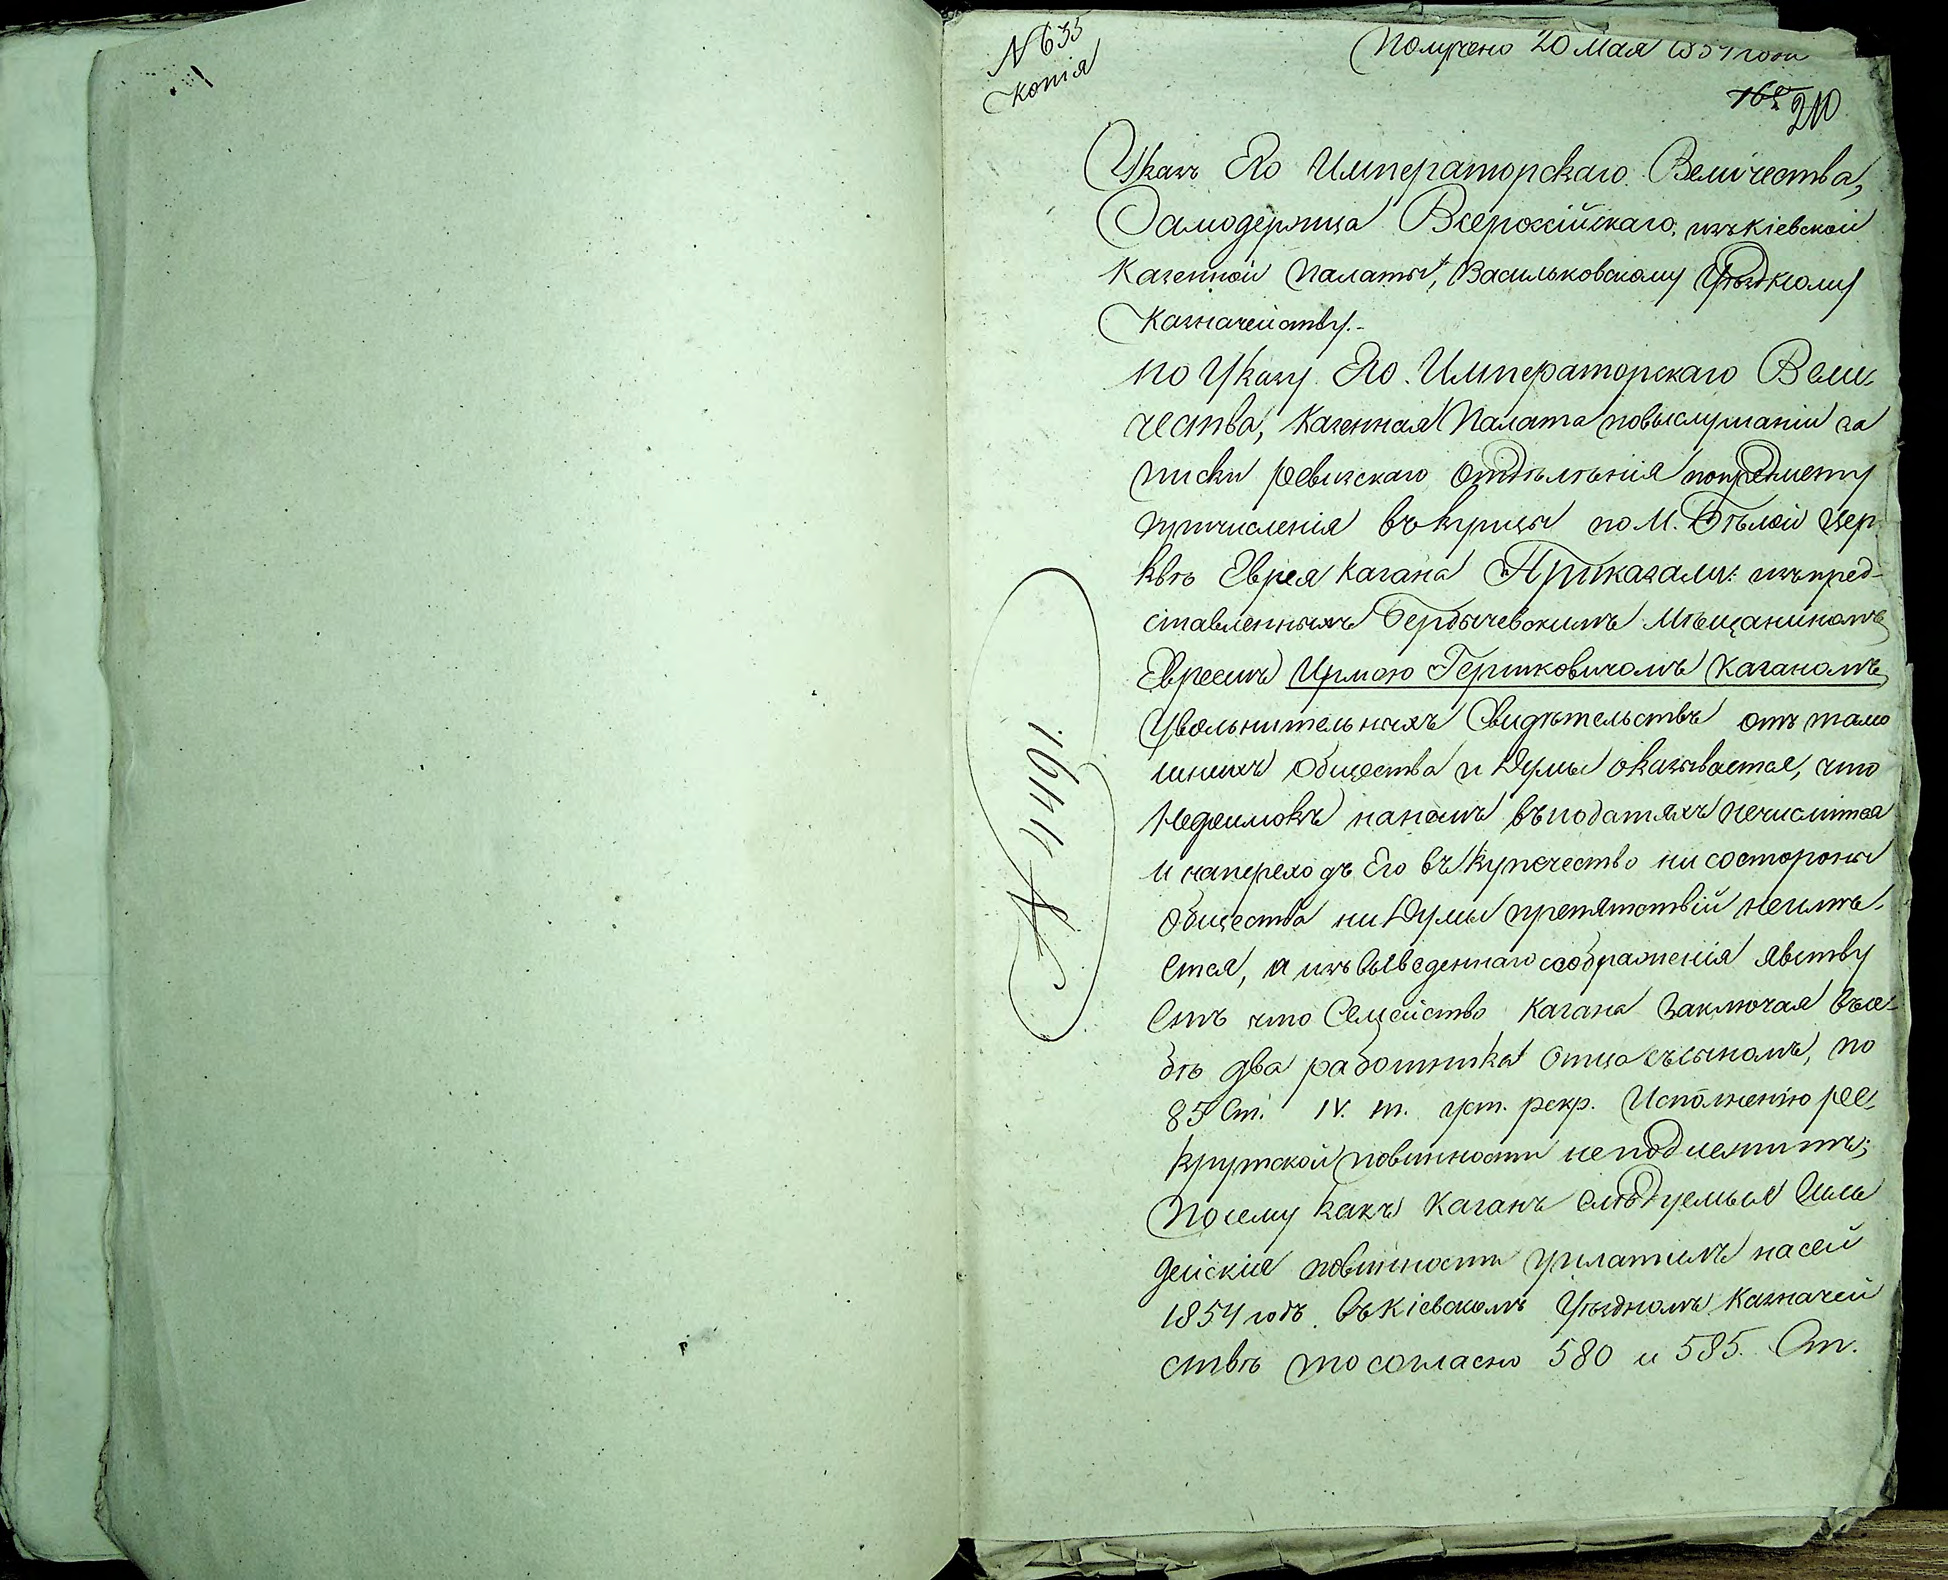 N 635
Копія
Получено 20 Мая 1854 года
210
Указъ Его Императорскаго Величества,
Самодержца Всероссійскаго, изъ Кіевской
Казенной Палаты, Васильковскому Уѣздному
Казначейству.-
По Указу Его Императорскаго Вели-
чества, Казенная Палата повыслушаніи за
писки ревизскаго отдѣленія попредмету
причисленія въ купцы по М. Бѣлой Цер-
квѣ Еврея Кагана Приказали: изъ пред-
ставленныхъ Бердычевскимъ Мѣщаниномъ
Евреемъ Ирмою Гершковичомъ Каганомъ
Увольнительныхъ Свидѣтельствъ отъ тамо
шнихъ общества и Думы оказывается, что
Недоимокъ нанемъ въ податяхъ нечислится
и напереходъ Его въ купечество ни состороны
общества ни Думы препятствій неимѣ-
ется, а изъ выведеннаго соображенія явству
етъ что Семейство Кагана Заключая въ се-
бѣ два работника отца съ сыномъ, по
85 Ст. IV. т. уст. рекр. Исполненію ре-
крутской повинности неподлежитъ;
Посему какъ Каганъ слѣдуемыя
дейскія повинности уплатилъ насей
1854 годъ въ Кіевскомъ Уѣздномъ Казначей
ствѣ то согласно 580 и 585. Ст.
№ 1644